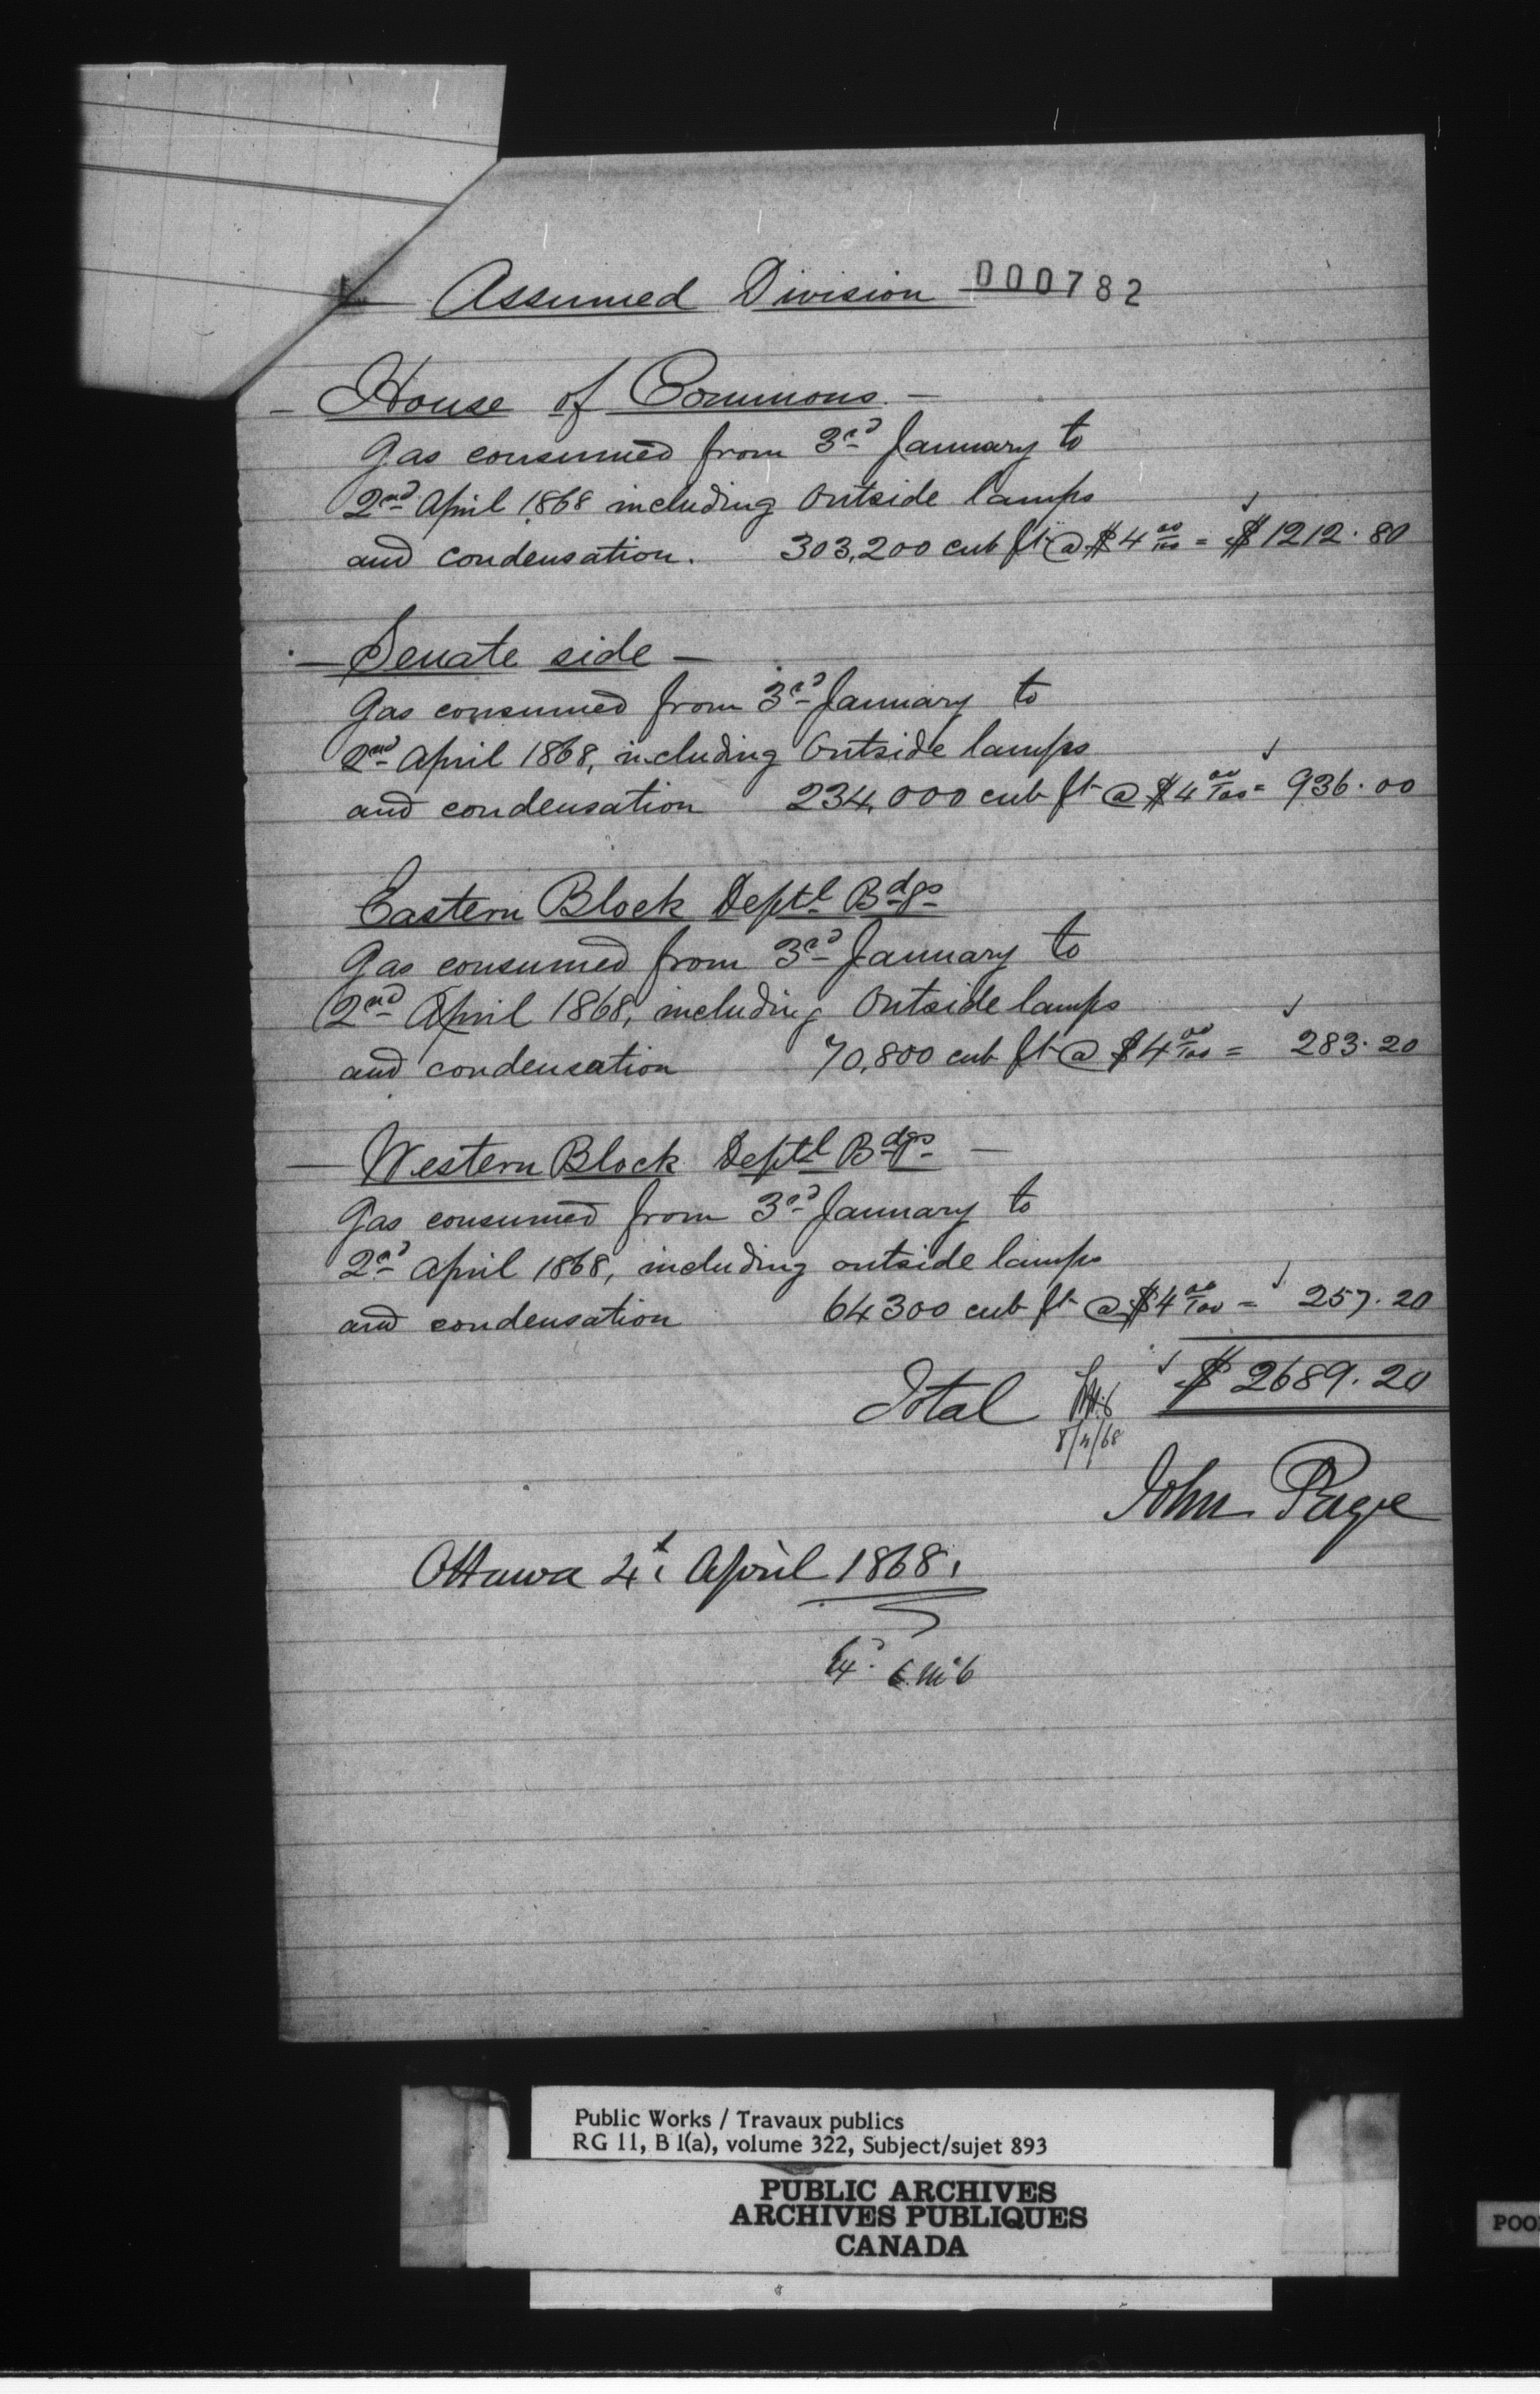 Assumed Division 000782
- House of Commons. -
Gas consumed from 3rd January to
2nd April 1868 including Outside lamps
and condensation. 303,200 cub ft @ $4 00/100 = $1212.80
- Senate side -
Gas consumed from 3rd January to
2nd April 1868, including Outside lamps
and condensation 234,000 cub ft @ $4 00/100 = 936.00
Eastern Block Deptl Bdgs
Gas consumed from 3rd January to
2nd April 1868, including Outside lamps
and condensation 70,800 cub ft @ $4 00/100 = 283.20
- Western Block Deptl Bdgs -
Gas consumed from 3rd January to
2nd April 1868, including outside lamps
and condensation 64300 cub ft @ $4 00/100 = 257.20
Total $2689.20
8/4/68
John Page
Ottawa 4th April 1868.
Public Works / Travaux publics
RG 11, B 1(a), volume 322, Subject/sujet 893
PUBLIC ARCHIVES
ARCHIVES PUBLIQUES
CANADA